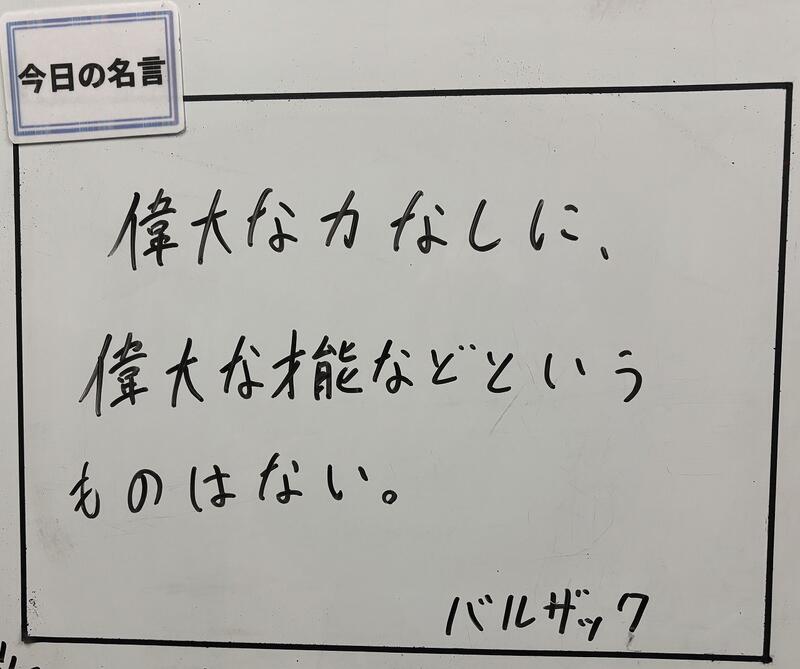 今日の名言
偉大な力なしに、
偉大な才能などという
ものはない。
バルザック